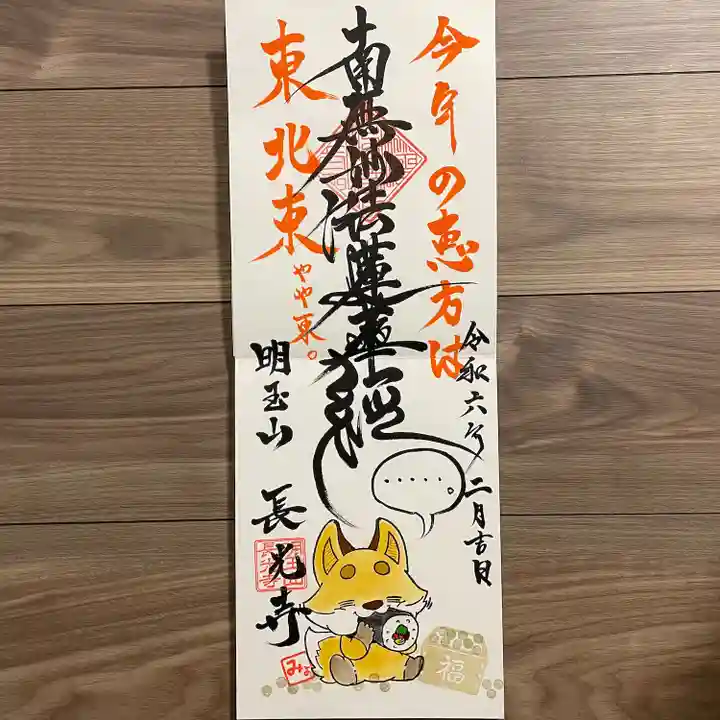 今年の恵方は
南無妙法蓮華経
東北東
やや東。
令和六年 二月吉日
明玉山 長光寺
・・・・・。
福
長光寺